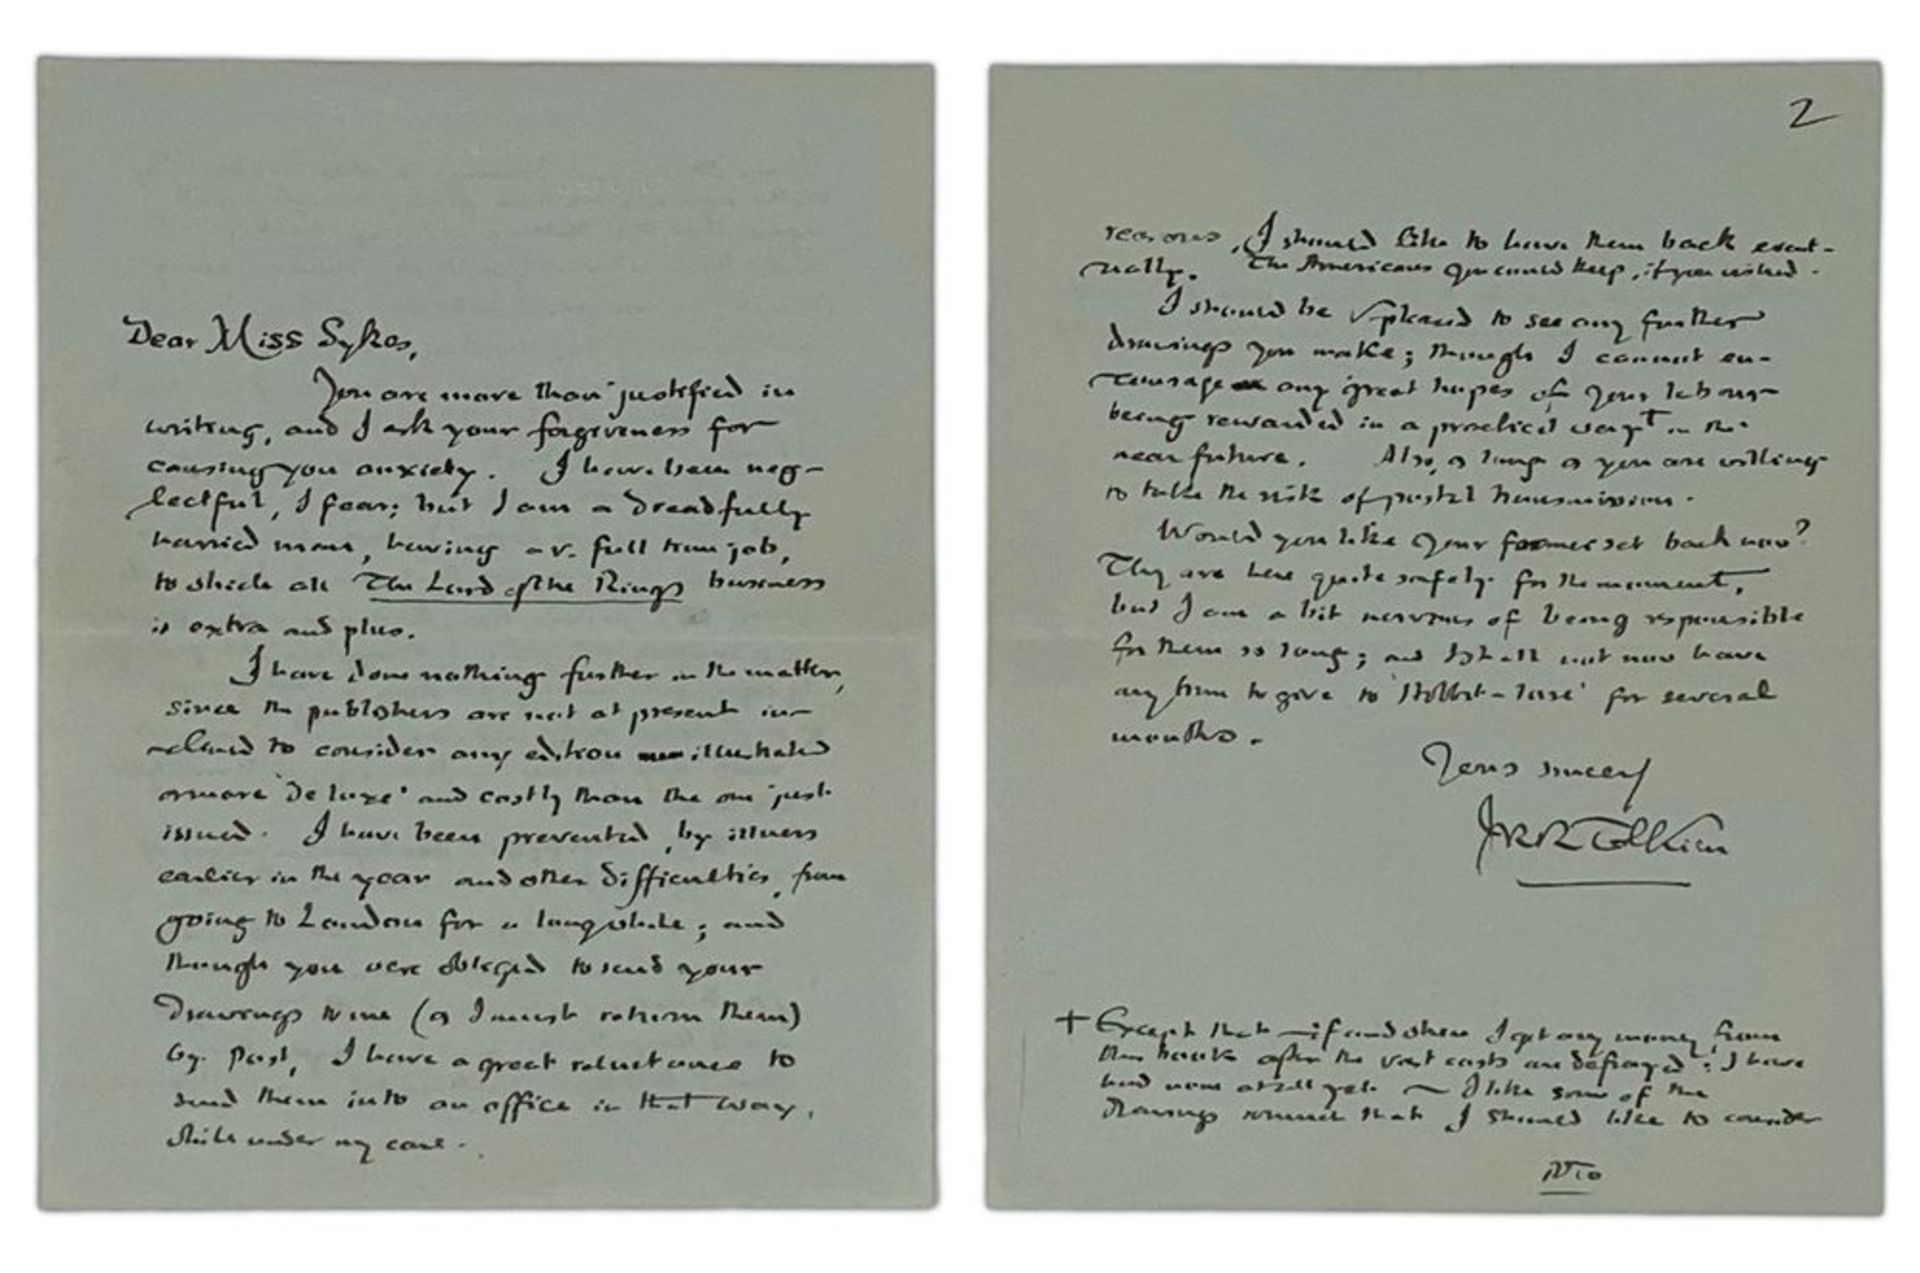 Dear Miss Sykes,
You are more than justified in
writing, and I ask your forgiveness for
causing you anxiety. I have been neg-
lectful, I fear; but I am a dreadfully
harried man, having a v. full time job,
to which all The Lord of the Rings business
is extra and plus.
I have done nothing further in the matter,
since the publishers are not at present in-
clined to consider any edition illustrated
or more 'de luxe' and costly than the one just
issued. I have been prevented, by illness
earlier in the year and other difficulties, from
going to London for a long while; and
though you were obliged to send your
drawings to me (as I must return them)
by post, I have a great reluctance to
send them into an office in that way,
while under my care.
2
reasons, I should like to have them back event-
ually. The Americans you could keep, if you wished.
I should be v. pleased to see any further
drawings you make; though I cannot en-
courage any great hopes of your labour
being rewarded in a practical way † in the
near future. Also, as long as you are willing
to take the risk of postal transmission.
Would you like your former set back now?
They are here quite safely for the moment,
but I am a bit nervous of being responsible
for them so long; and I shall not now have
any time to give to 'Hobbit-lore' for several
months.
Yours sincerely
JRRTolkien
† Except that – if and when I get any money from
the books after the vast costs are defrayed: I have
had none at all yet – I like some of the
drawings so much that I should like to consider
PTO